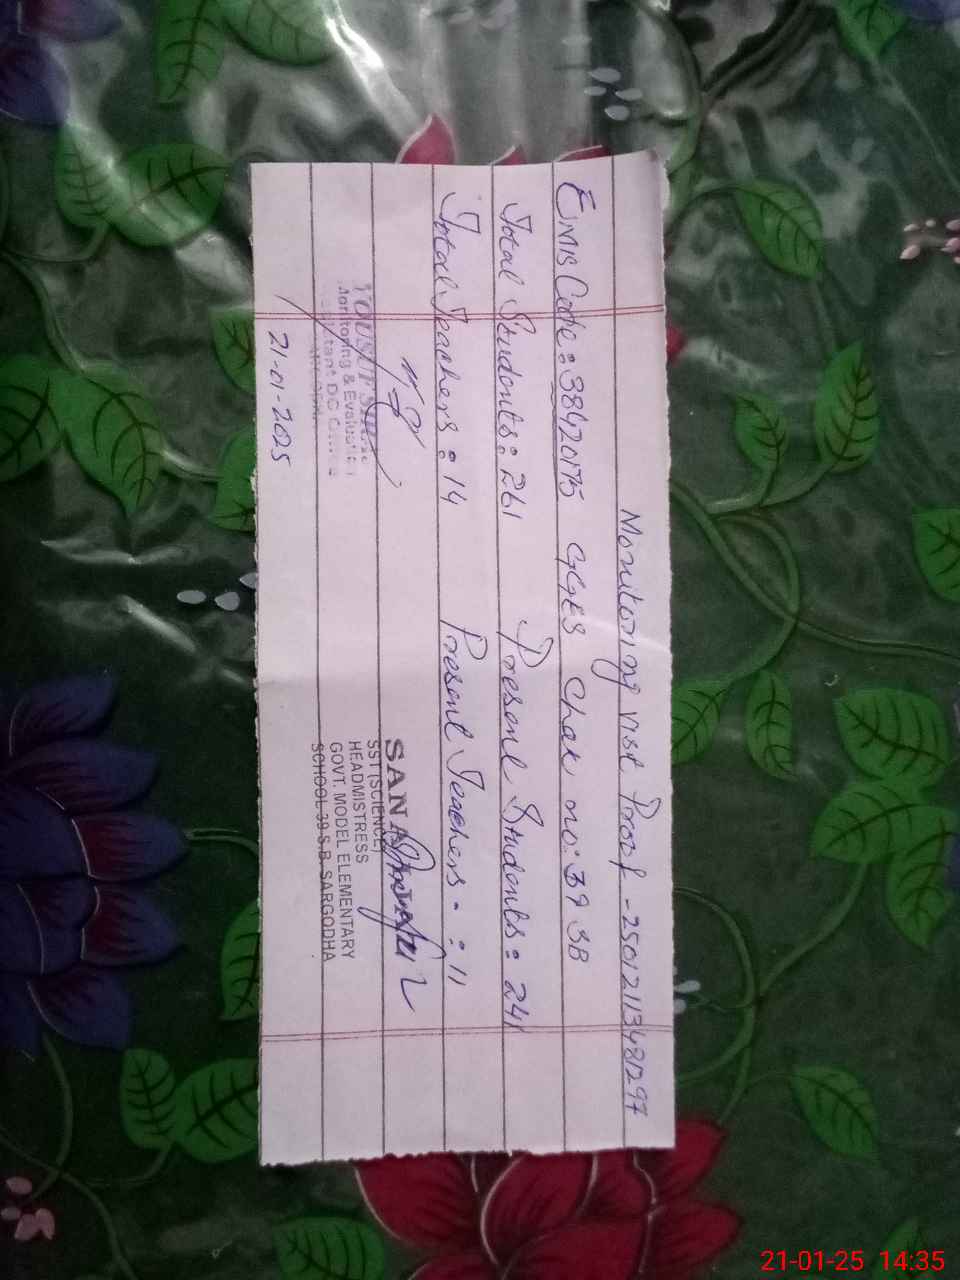 Monitoring visit Proof - 25012113481297
Emis Code: 38420175 GGES Chak no: 39 SB
Total Students: 261 Present Students: 241
Total Teachers: 14 Present Teachers: 11
Monitoring & Evaluation
21-01-2025
SANA
SST (SCIENCE)
HEADMISTRESS
GOVT. MODEL ELEMENTARY
SCHOOL 39-S.B. SARGODHA
21-01-25 14:35